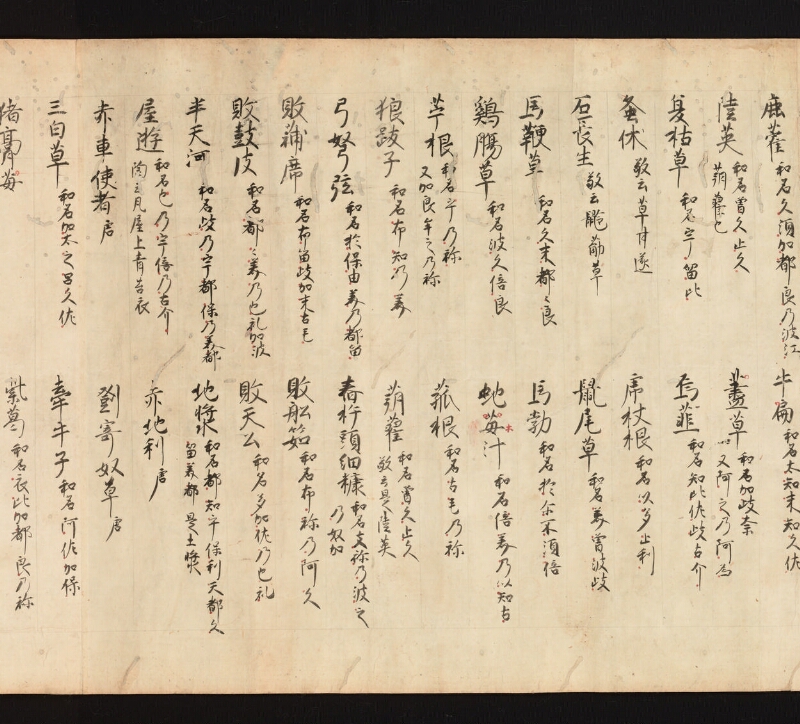 鹿藿 和名久須加都良乃波江 牛扁 和名太知末知久佐
陸英 和名曽久止久 蒴藋也 藎草 和名加岐奈 一又阿之乃阿為
夏枯草 和名宇留比 烏韮 和名知比佐岐古介
蚤休 敬云草甘遂 虎杖根 和名以多止利
石長生 敬云筋草 鼠尾草 和名美曽波岐
馬鞭草 和名久末都々良 馬勃 和名於尓布須倍
鷄膓草 和名波久倍良 蛇苺汁 和名倍美乃以知古
苧根 和名乎乃祢 又加良牟之乃祢 菰根 和名古毛乃祢
狼跋子 和名布知乃美 蒴藋 和名曽久止久 敬云是陸英
弓弩弦 和名於保由美乃都留 舂杵頭細糠 和名支祢乃波之乃奴加
敗蒲席 和名布留岐加末古毛 敗舩茹 和名布祢乃阿久
敗鼓皮 和名都々美乃也礼加波 敗天公 和名多加佐乃也礼
半天河 和名岐乃宇都保乃美都 地漿 和名都知乎保利天都久留美都 是土漿
屋遊 和名也乃宇倍乃古介 陶云凡屋上青苔衣 赤地利 唐
赤車使者 唐 劉寄奴草 唐
三白草 和名加太之呂久佐 牽牛子 和名阿佐加保
猪膏苺 紫葛 和名衣比加都良乃祢